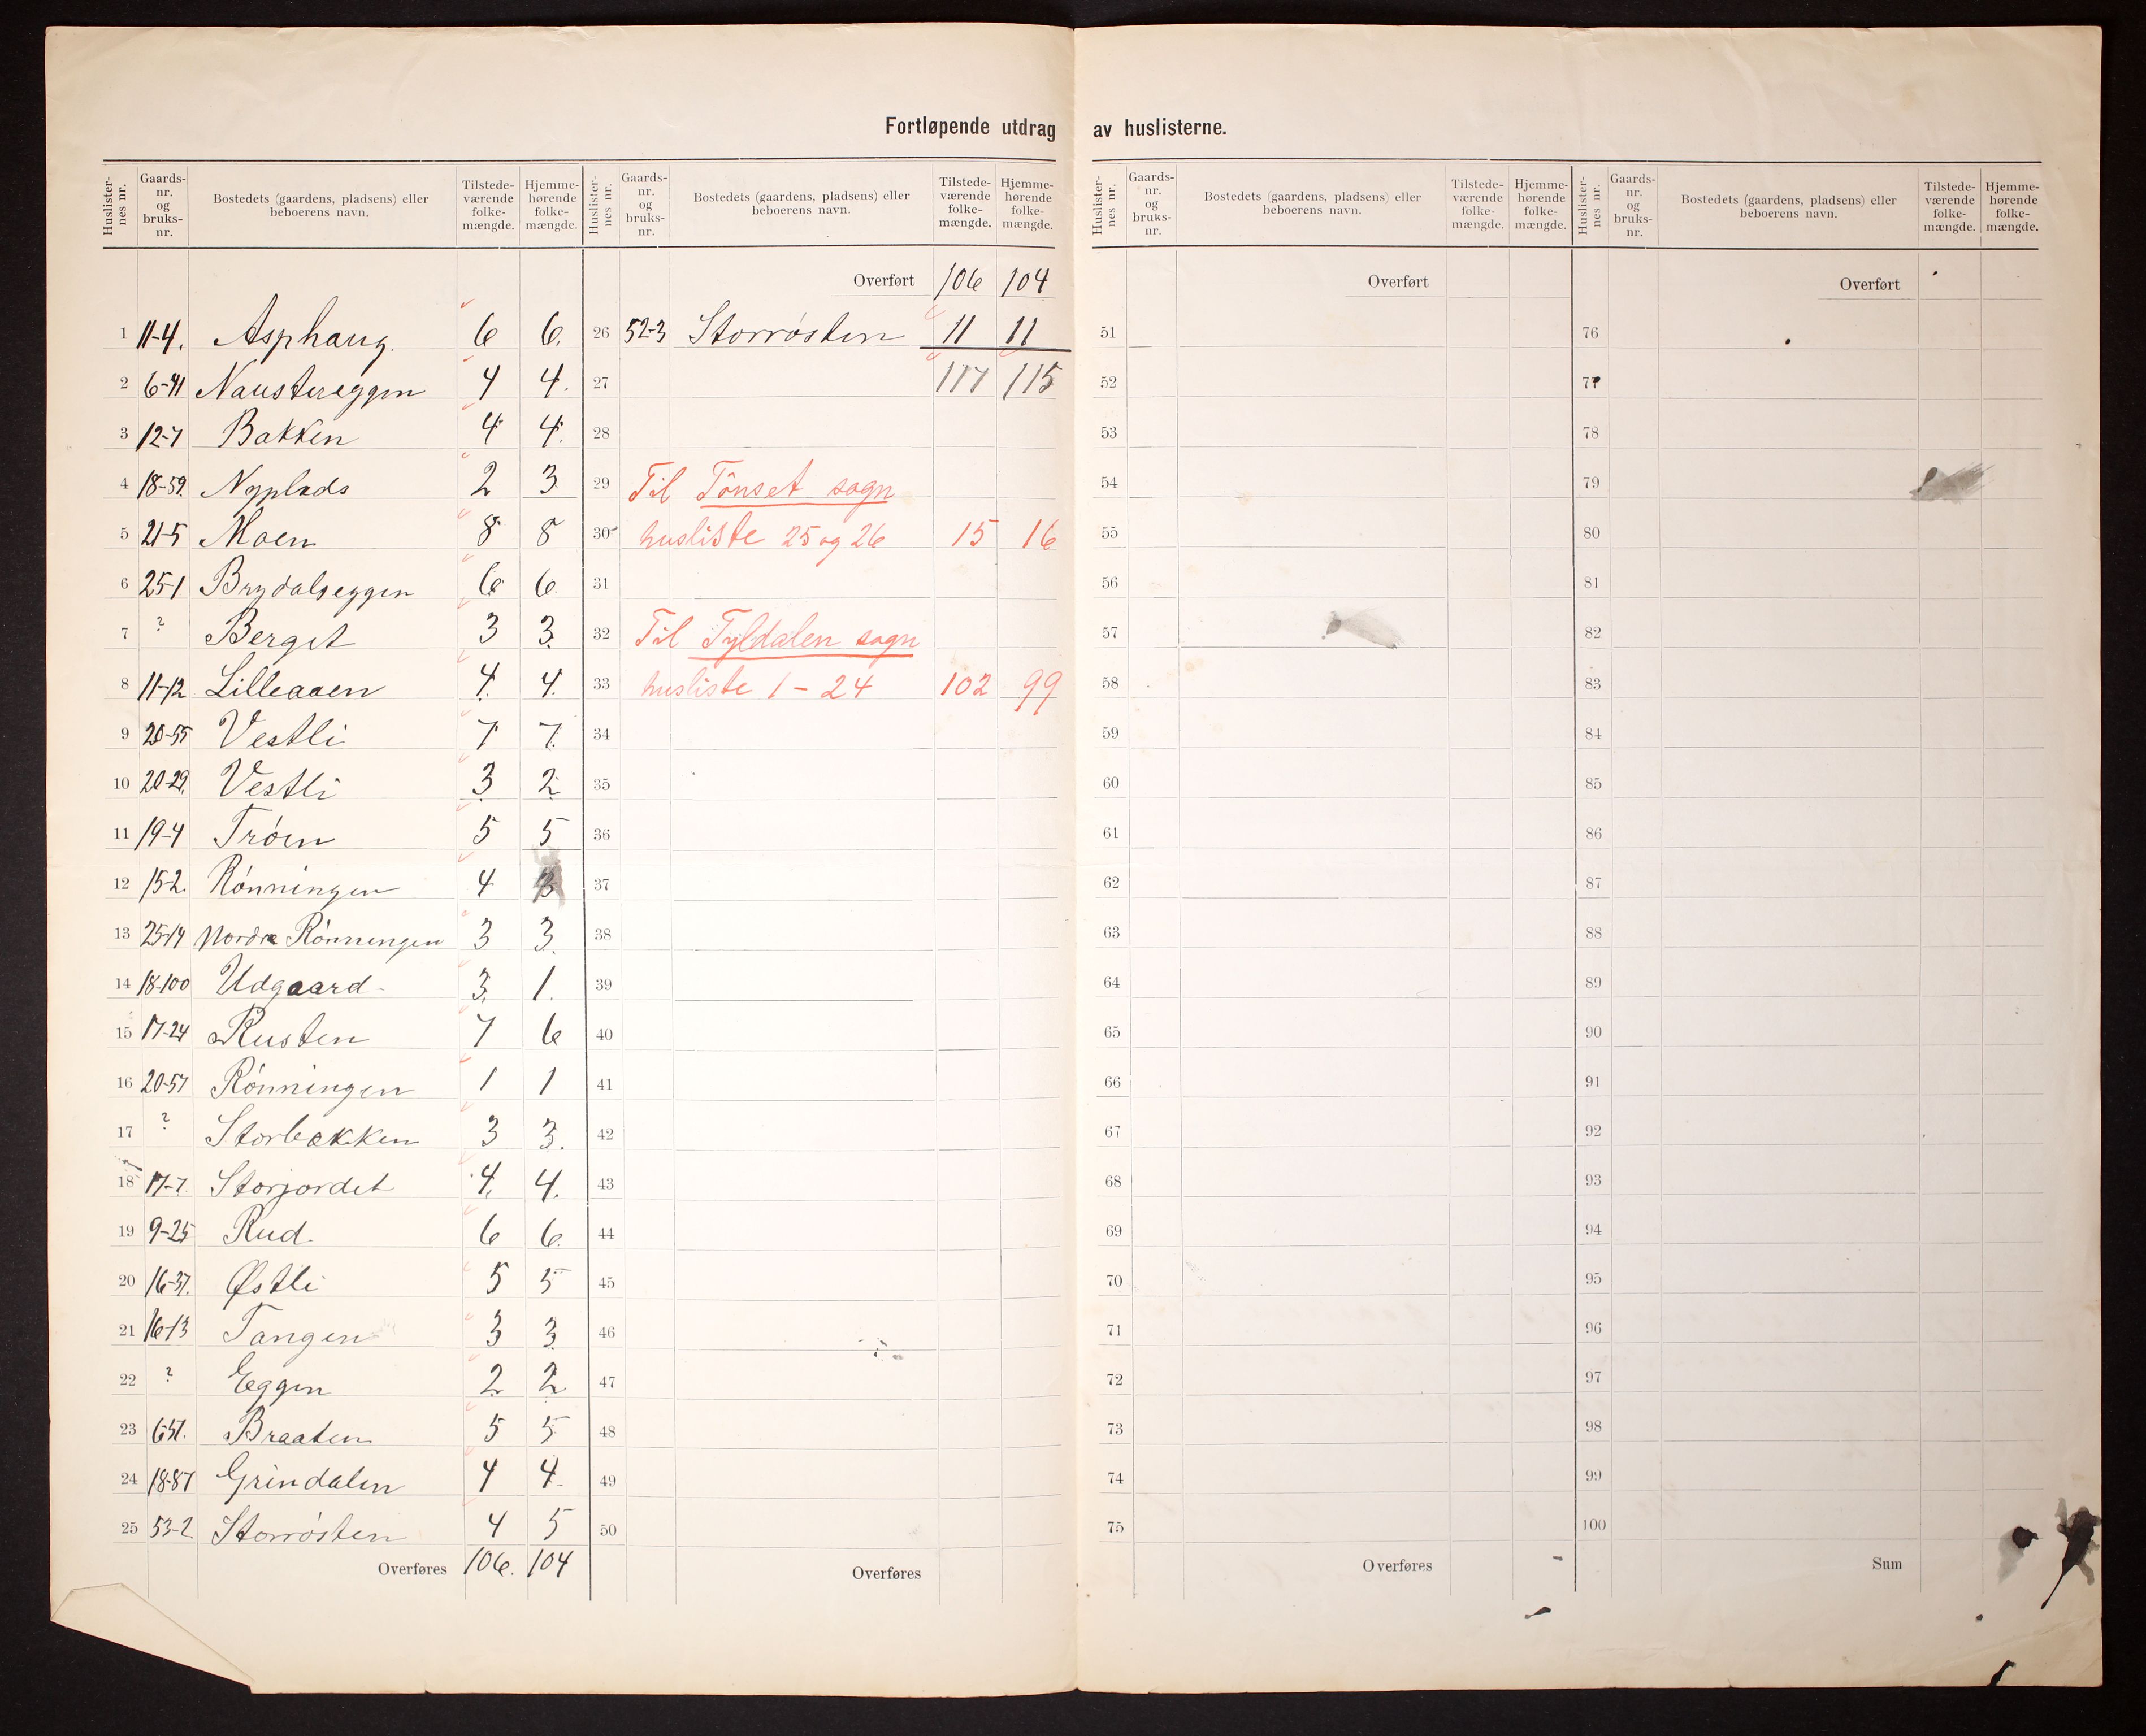 Fortløpende utdrag av huslisterne.
Huslisternes nr. Gaardsnr. og bruksnr. Bostedets (gaardens, pladsens) eller beboerens navn. Tilstedeværende folkemængde. Hjemmehørende folkemængde.
Huslisternes nr. Gaardsnr. og bruksnr. Bostedets (gaardens, pladsens) eller beboerens navn. Tilstedeværende folkemængde. Hjemmehørende folkemængde.
Huslisternes nr. Gaardsnr. og bruksnr. Bostedets (gaardens, pladsens) eller beboerens navn. Tilstedeværende folkemængde. Hjemmehørende folkemængde.
Huslisternes nr. Gaardsnr. og bruksnr. Bostedets (gaardens, pladsens) eller beboerens navn. Tilstedeværende folkemængde. Hjemmehørende folkemængde.
1 11-4. Asphaug. 6 6.
2 6-41 Naustereggen 4 4.
3 12-7 Bakken 4 4.
4 18-59. Nyplads 2 3
5 21-5 Moen 8 8
6 25-1 Brydalseggen 6 6
7 ? Berget 3 3.
8 11-12 Lilleaaen 4. 4.
9 20-55 Vestli 7 7.
10 20-29. Vestli 3 2
11 19-4 Trøen 5 5
12 15-2. Rønningen 4 3
13 25-14 Nordre Rønningen 3 3.
14 18-100 Udgaard 3. 1.
15 17-24 Rusten 7 6
16 20-57 Rønningen 1 1
17 ? Storbakken 3 3.
18 17-7. Storjordet 4. 4.
19 9-25 Rud 6 6.
20 16-37. Østli 5 5
21 16-13 Tangen 3 3
22 ? Eggen 2 2
23 6-51. Braaten 5 5
24 18-87 Grindalen 4 4
25 53-2 Storrøsten 4 5
Overføres 106. 104
Overført 106 104
26 52-3 Storrøsten 11 11
27 117 115
28
29 Til Tönset sogn
30 husliste 25 og 26 15 16
31
32 Til Tyldalen sogn
33 husliste 1 - 24 102 99
34
35
36
37
38
39
40
41
42
43
44
45
46
47
48
49
50
Overføres
Overført
51
52
53
54
55
56
57
58
59
60
61
62
63
64
65
66
67
68
69
70
71
72
73
74
75
Overføres
Overført
76
77
78
79
80
81
82
83
84
85
86
87
88
89
90
91
92
93
94
95
96
97
98
99
100
Sum